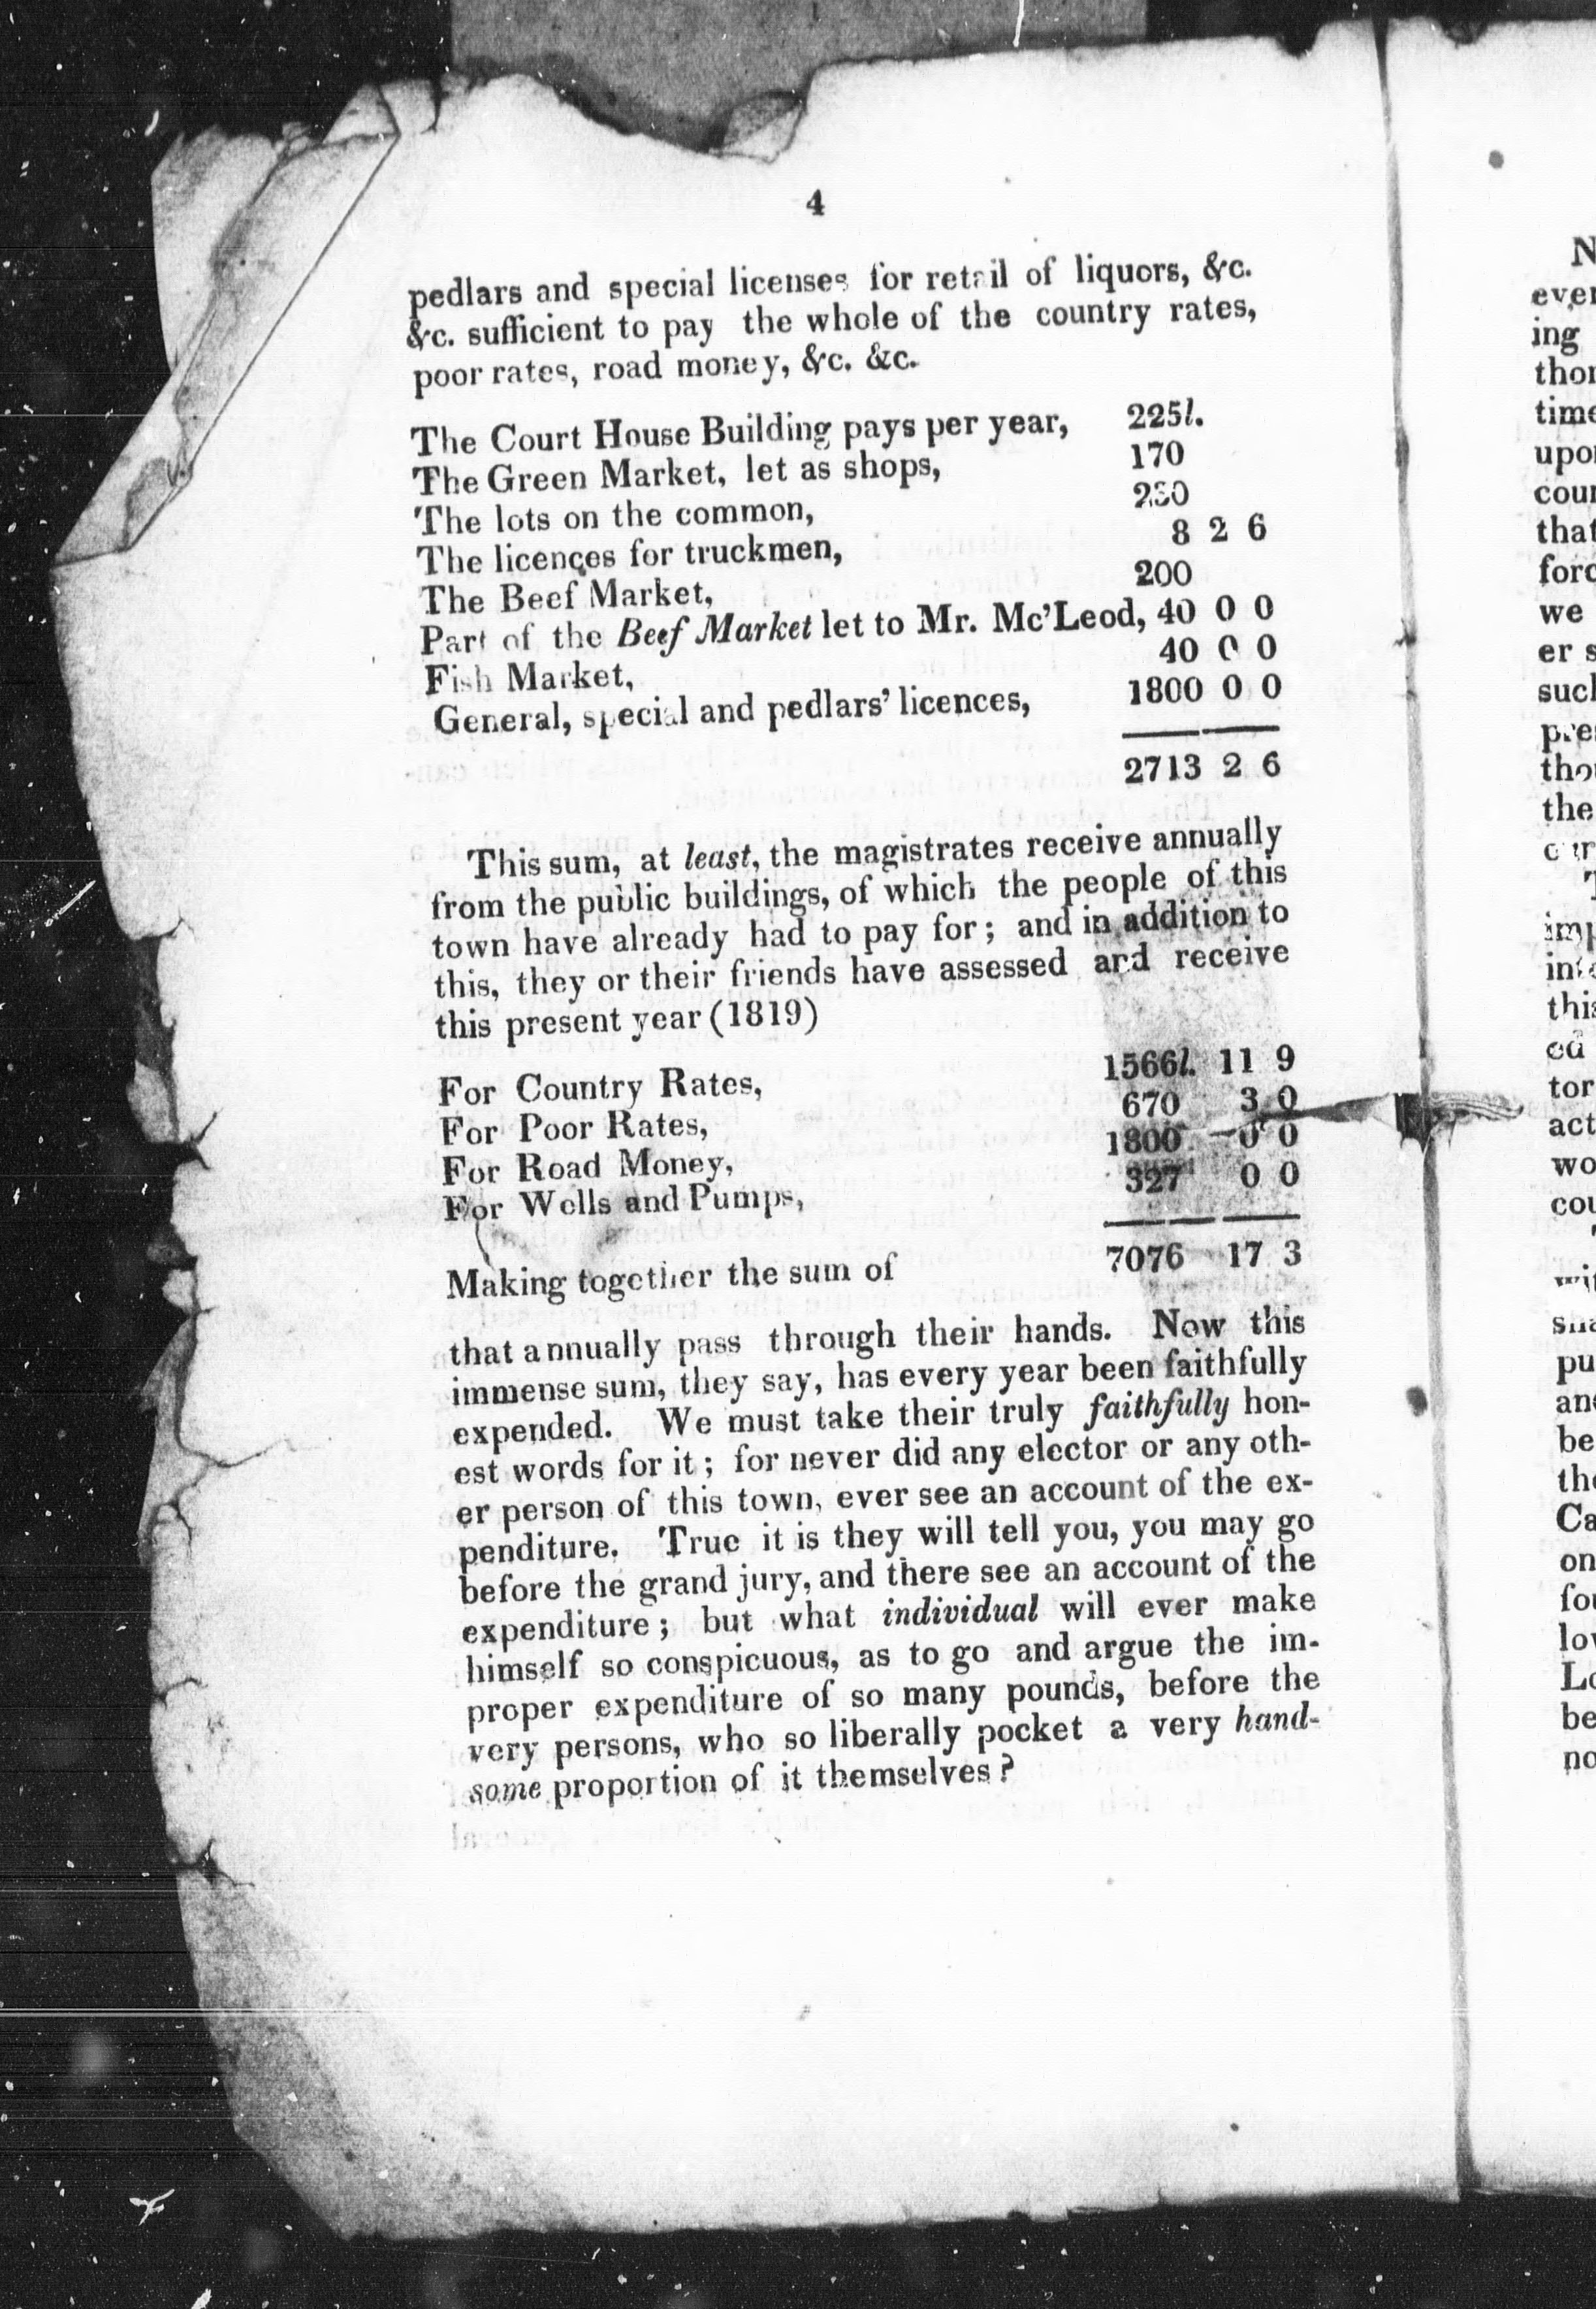 4
pedlars and special licenses for retail of liquors, &c.
&c. sufficient to pay the whole of the country rates,
poor rates, road money, &c. &c.
The Court House Building pays per year, 225l.
The Green Market, let as shops, 170
The lots on the common, 230
The licences for truckmen, 8 2 6
The Beef Market, 200
Part of the Beef Market let to Mr. Mc'Leod, 40 0 0
Fish Market, 40 0 0
General, special and pedlars' licences, 1800 0 0
2713 2 6
This sum, at least, the magistrates receive annually
from the public buildings, of which the people of this
town have already had to pay for; and in addition to
this, they or their friends have assessed and receive
this present year (1819)
For Country Rates, 1566l. 11 9
For Poor Rates, 670 3 0
For Road Money, 1800 0 0
For Wells and Pumps, 327 0 0
Making together the sum of 7076 17 3
that annually pass through their hands. Now this
immense sum, they say, has every year been faithfully
expended. We must take their truly faithfully hon-
est words for it; for never did any elector or any oth-
er person of this town, ever see an account of the ex-
penditure. True it is they will tell you, you may go
before the grand jury, and there see an account of the
expenditure; but what individual will ever make
himself so conspicuous, as to go and argue the im-
proper expenditure of so many pounds, before the
very persons, who so liberally pocket a very hand-
some proportion of it themselves?
N
ing
time
that
we
er s
the
tor
act
wo
pu
be
on
be